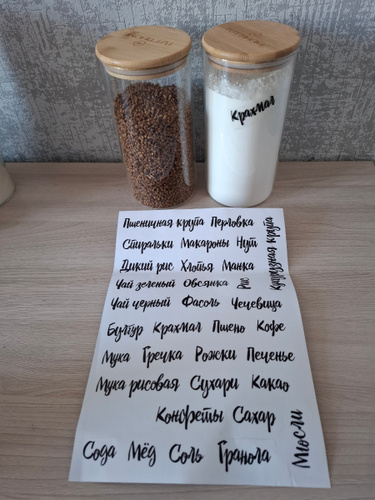 Крахмал
Пшеничная крупа Перловка
Спиральки Макароны Нут
Кукурузная крупа
Дикий рис Хлопья Манка
Чай зеленый Овсянка Рис
Чай черный Фасоль Чечевица
Булгур Крахмал Пшено Кофе
Мука Гречка Рожки Печенье
Мука рисовая Сухари Какао
Конфеты Сахар
Мюсли
Сода Мёд Соль Гранола